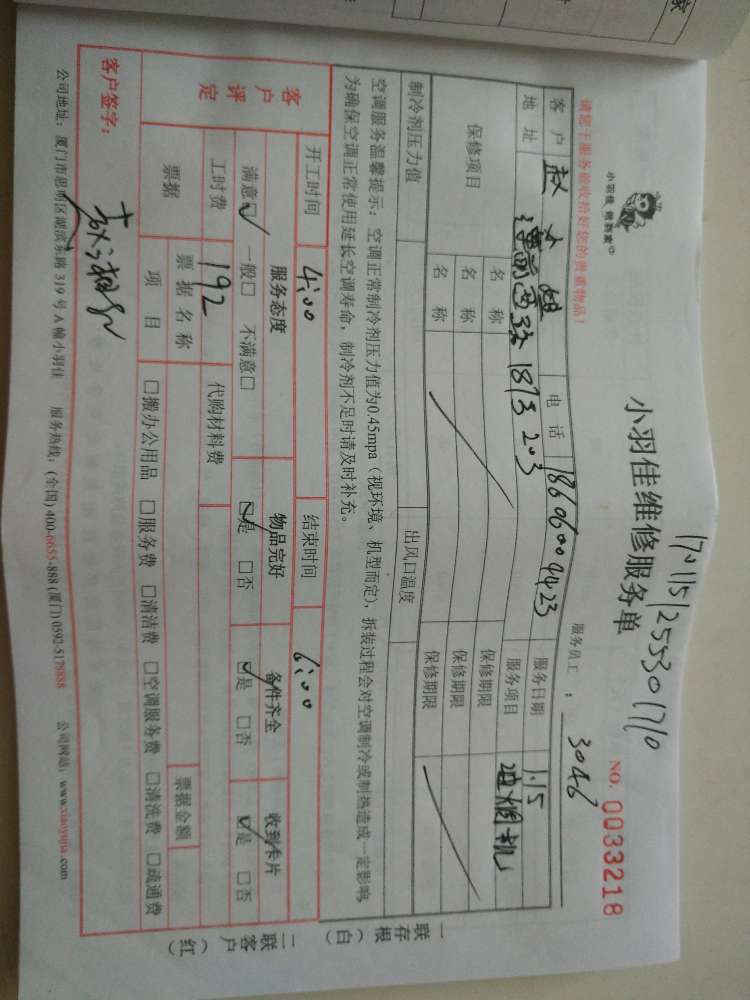 1701151255301710
小羽佳维修服务单
NO. 0033218
小羽佳 做到家
请您于服务验收拾好您的贵重物品!
服务员工 : 3046
客户 赵小姐 电话 18606004423 服务日期 1.15
地址 莲前西路 187号 203 服务项目 油烟机
保修项目 名称 保修期限
名称 保修期限
名称 保修期限
制冷剂压力值 出风口温度
空调服务温馨提示:空调正常制冷剂压力值为0.45mpa(视环境、机型而定),拆装过程会对空调制冷或制热造成一定影响,
为确保空调正常使用延长空调寿命,制冷剂不足时请及时补充。
开工时间 4:00 结束时间 6:00
客户评定 服务态度 物品完好 备件齐全 收到卡片
满意☑ 一般□ 不满意□ ☑是 □否 ☑是 □否 ☑是 □否
工时费 192 代购材料费
票据 票据名称 票据金额
项目 □搬办公用品 □服务费 □清洁费 □空调服务费 □清洗费 □疏通费
客户签字:
公司地址:厦门市思明区湖滨东路 319 号 A 幢小羽佳 服务热线:(全国) 400-6655-888 (厦门) 0592-5178888 公司网站:www.xiaoyujia.com
一联存根(白)
二联客户(红)